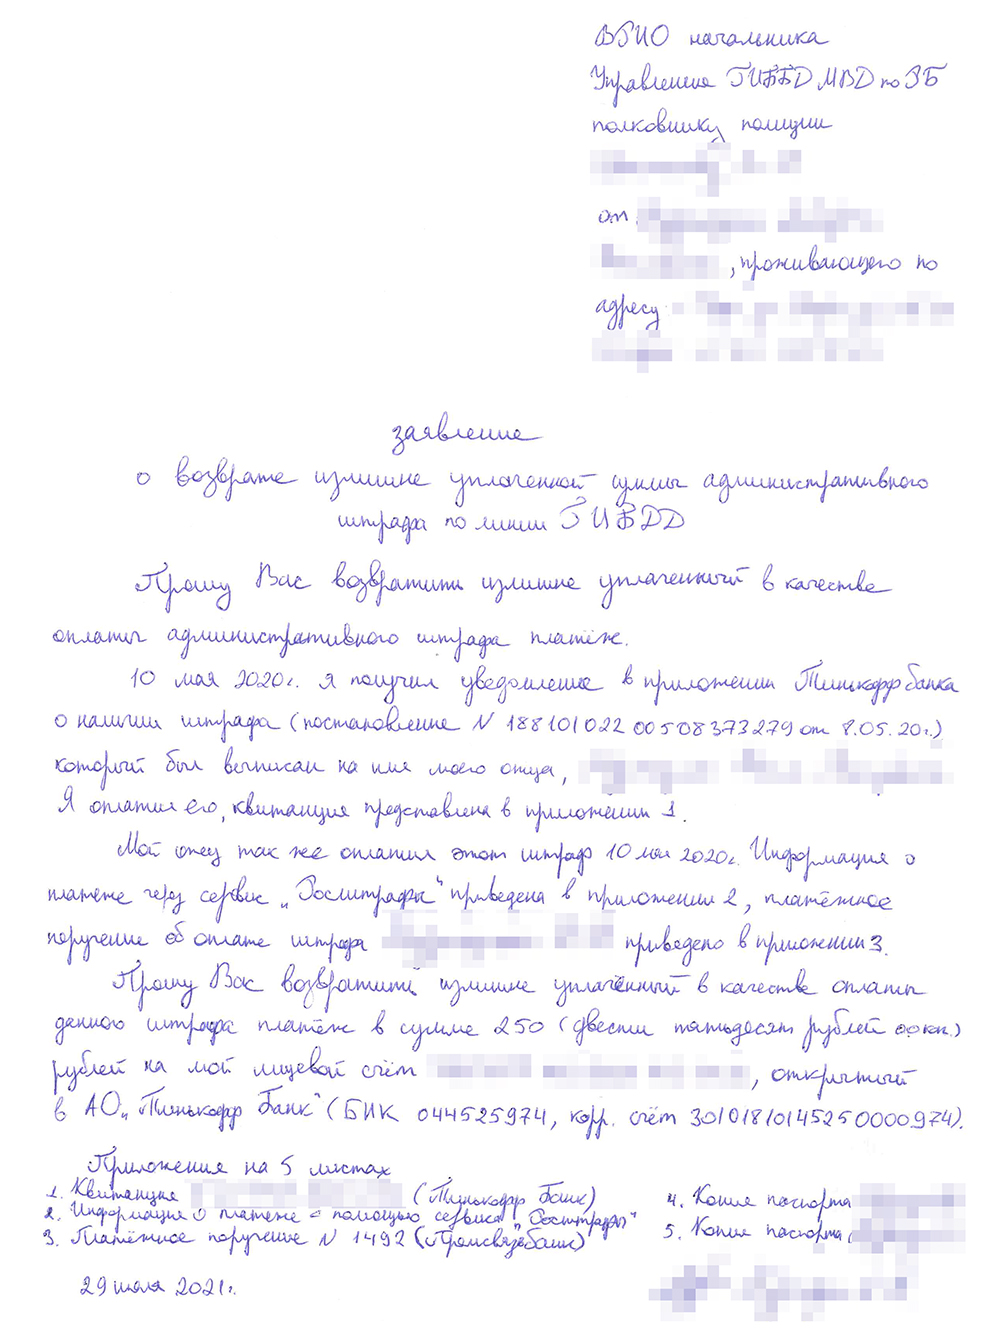 ВРИО начальника
Управления ГИБДД МВД по РБ
полковнику полиции
от
, проживающего по
адресу
заявление
о возврате излишне уплаченной суммы административного
штрафа по линии ГИБДД
Прошу Вас возвратить излишне уплаченный в качестве
оплаты административного штрафа платёж.
10 мая 2020г. я получил уведомление в приложении Тинькофф банка
о наличии штрафа (постановление N 18810102200508373279 от 8.05.20г.)
который был выписан на имя моего отца,
Я оплатил его, квитанция представлена в приложении 1.
Мой отец так же оплатил этот штраф 10 мая 2020г. Информация о
платеже через сервис „Росштрафы" приведена в приложении 2, платёжное
поручение об оплате штрафа приведено в приложении 3.
Прошу Вас возвратить излишне уплаченный в качестве оплаты
данного штрафа платёж в сумме 250 (двести пятьдесят рублей 00 коп.)
рублей на мой лицевой счёт , открытый
в АО „Тинькофф Банк" (БИК 044525974, корр. счёт 30101810145250000974).
Приложения на 5 листах
1. Квитанция (Тинькофф Банк)
2. Информация о платеже с помощью сервиса „Росштрафы"
3. Платёжное поручение N 1492 (Промсвязьбанк)
4. Копия паспорта
5. Копия паспорта
29 июля 2021г.